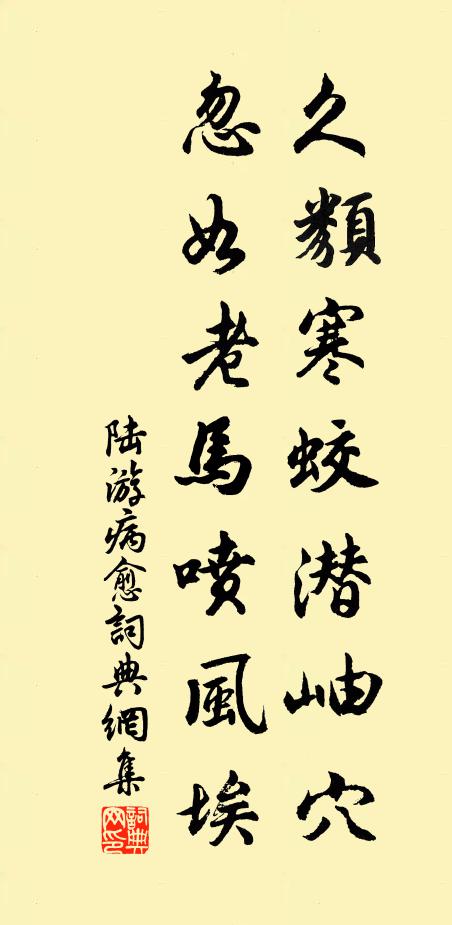 久類寒蛟潛岫穴
忽如老馬噴風埃
陆游病愈詞典網集
詞典网印